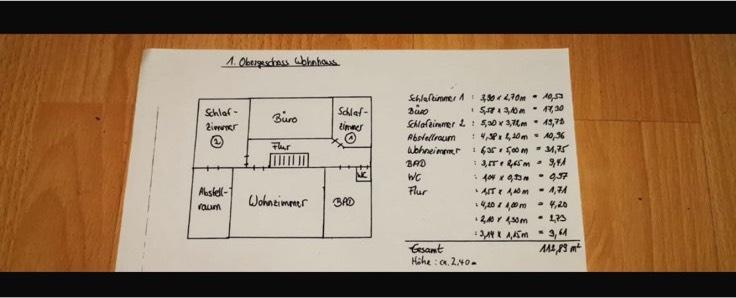 1. Obergeschoss Wohnhaus
Schlaf-
zimmer
2
Büro
Schlaf-
zimmer
1
Flur
WC
Abstell-
raum
Wohnzimmer
BAD
Schlafzimmer 1 : 3,90 x 2,70m = 10,53
Büro : 5,58 x 3,10m = 17,30
Schlafzimmer 2 : 5,30 x 3,72m = 19,72
Abstellraum : 4,98 x 2,20m = 10,96
Wohnzimmer : 6,35 x 5,00m = 31,75
BAD : 3,55 x 2,65m = 9,41
WC : 1,04 x 0,93m = 0,97
Flur : 1,55 x 1,10m = 1,71
: 4,20 x 1,00m = 4,20
: 2,10 x 1,30m = 2,73
: 3,14 x 1,15m = 3,61
Gesamt 112,89 m²
Höhe : ca. 2,40m